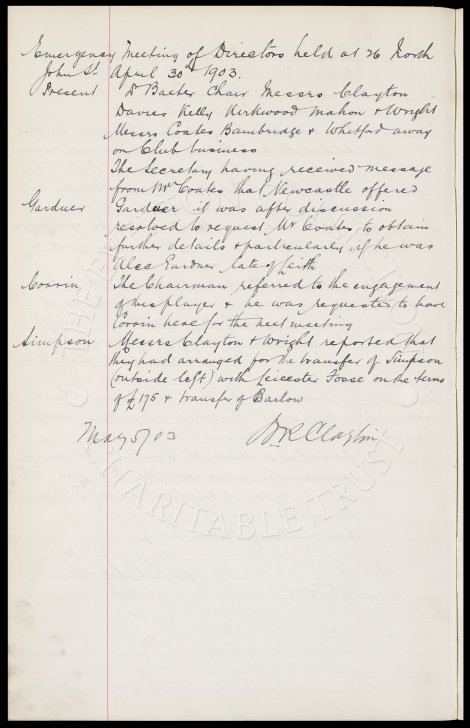 Emergency Meeting of Directors held at 26 North
John St April 30th 1903.
Present Dr Baxter Chair Messrs Clayton
Davies Kelly Kirkwood Mahon & Wright
Messrs Coates Bainbridge & Whitford away
on Club business
The Secretary having received message
from Mr Coates that Newcastle offered
Gardner Gardner it was after discussion
resolved to request Mr Coates to obtain
further details & particularly if he was
Alec Gardner late of Leith
Corrin The Chairman referred to the engagement
of this player & he was requested to have
Corrin here for the next meeting
Simpson Messrs Clayton & Wright reported that
they had arranged for the transfer of Simpson
(outside left) with Leicester Fosse on the terms
of £175 & transfer of Barlow
May 5/03 W R Clayton
CHARITABLE TRUST